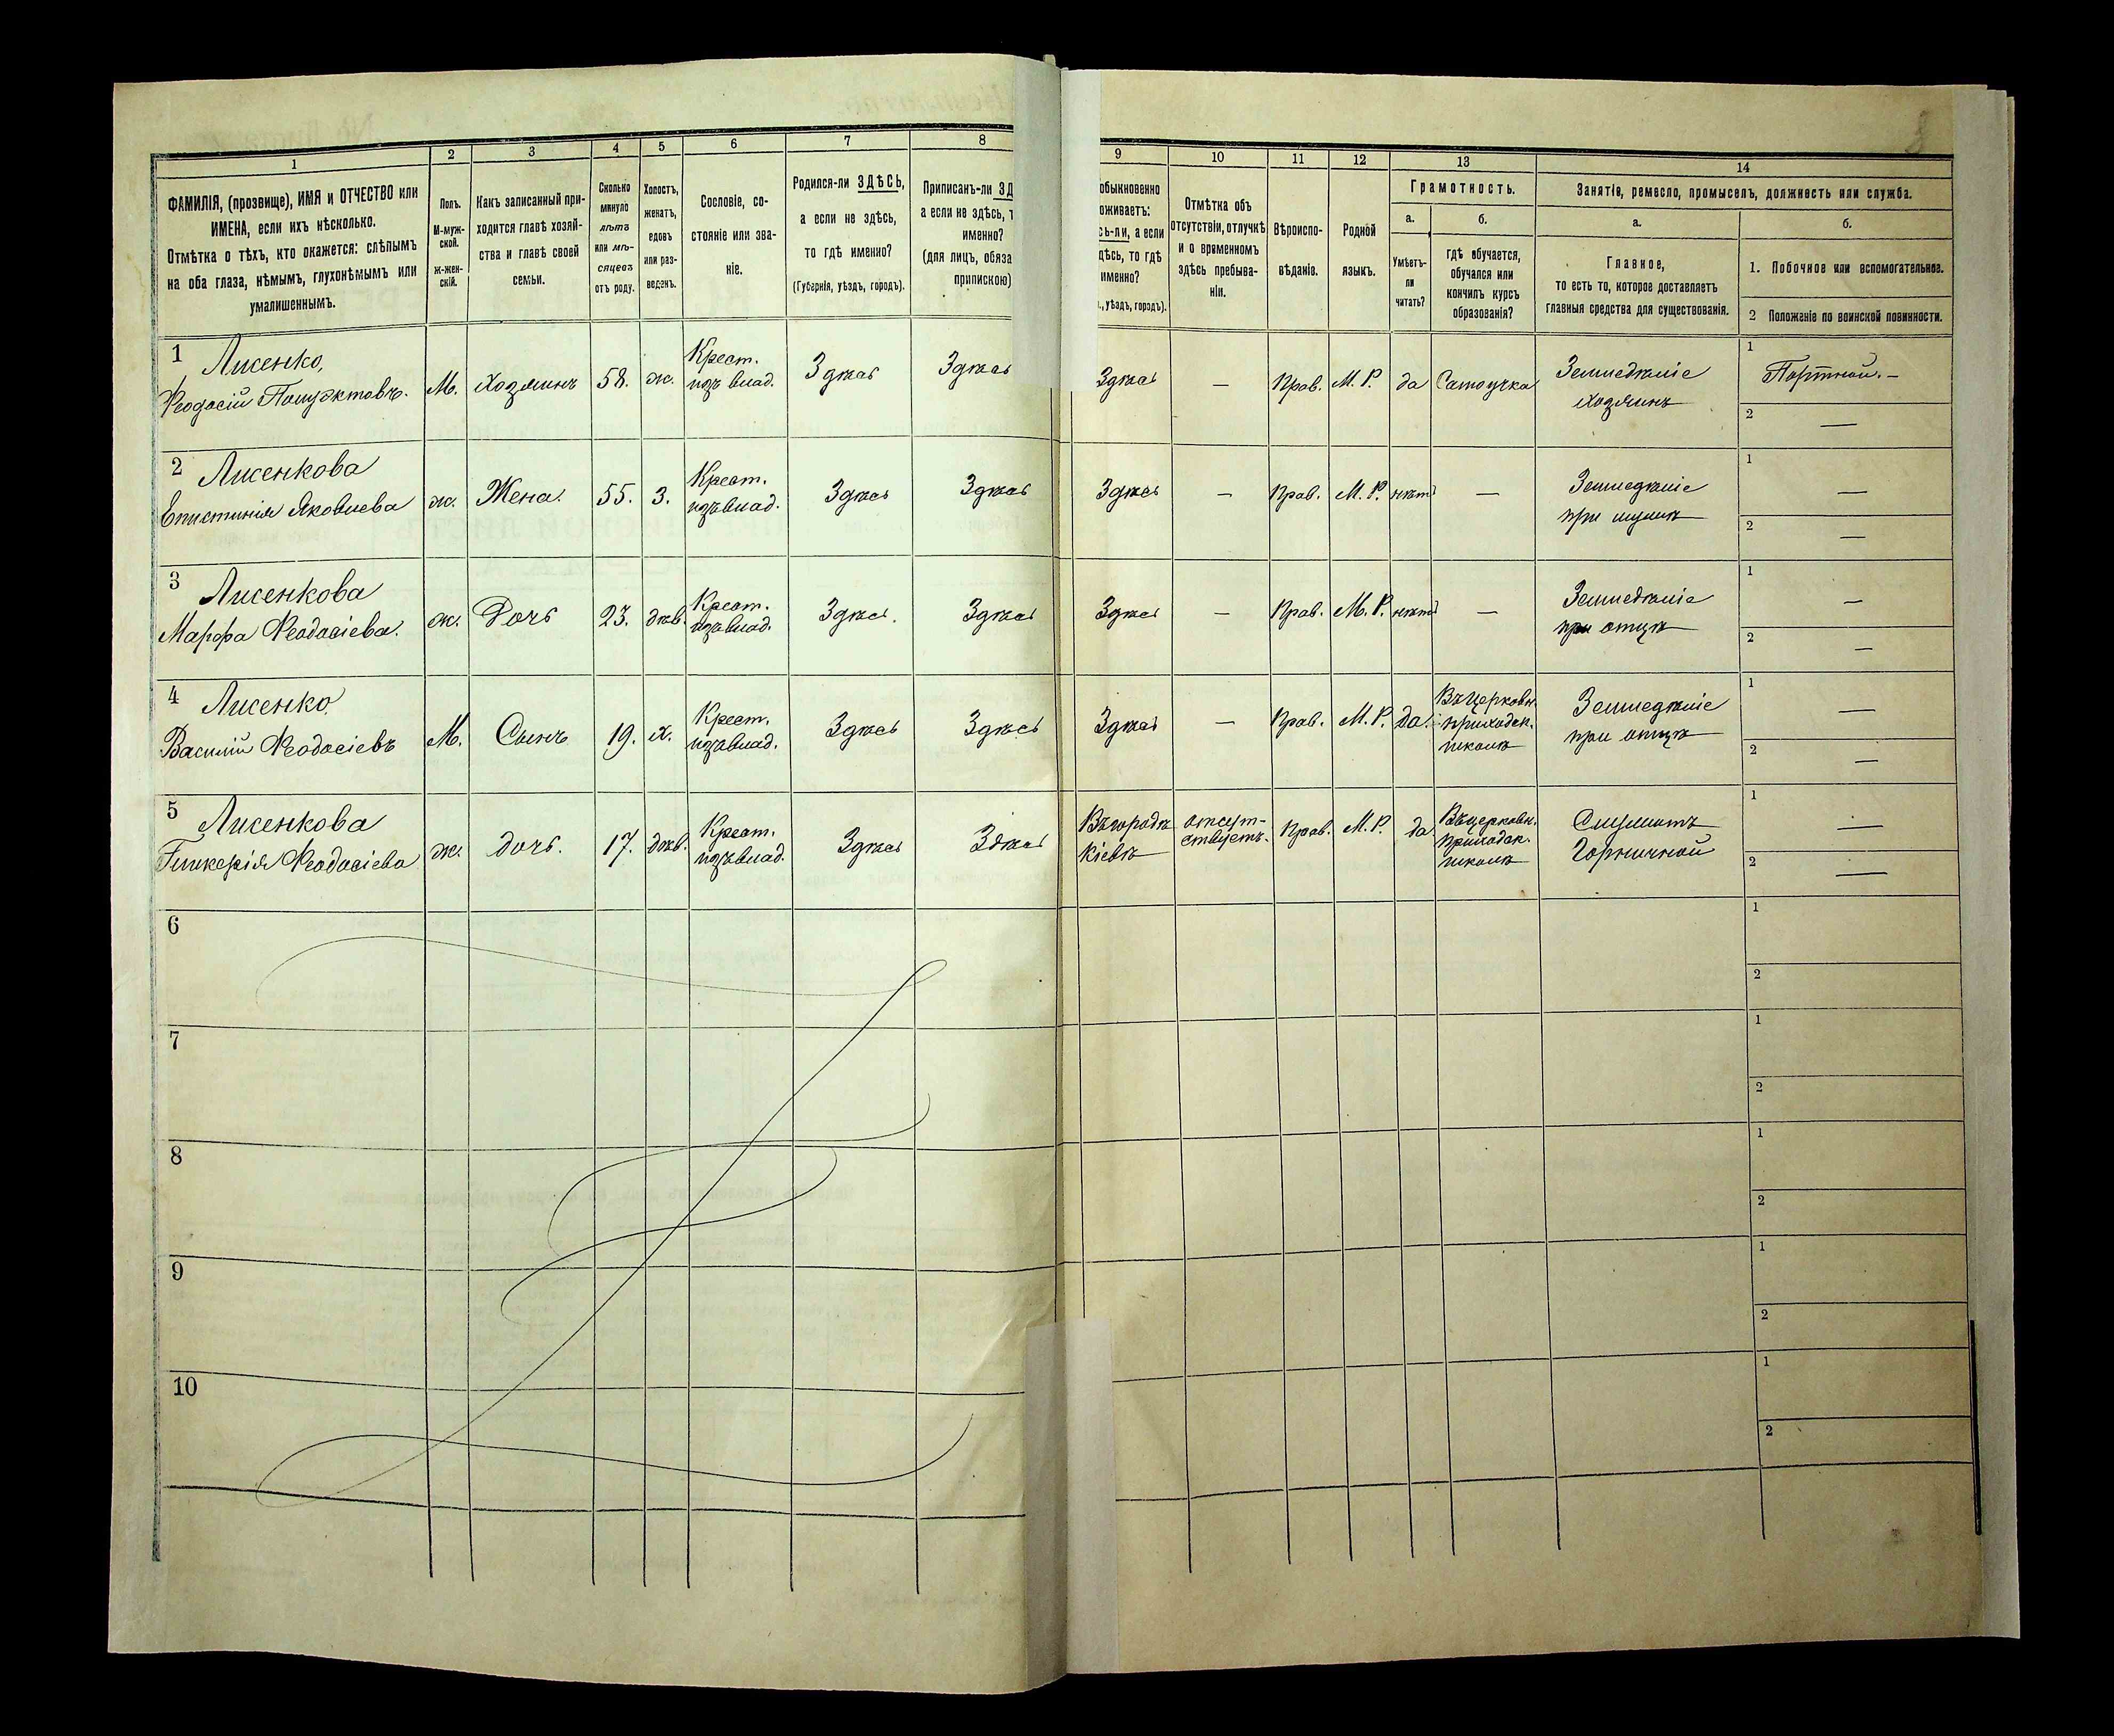 1
2
3
4
5
6
7
8
ФАМИЛІЯ, (прозвище), ИМЯ и ОТЧЕСТВО или
ИМЕНА, если ихъ нѣсколько.
Отмѣтка о тѣхъ, кто окажется: слѣпымъ
на оба глаза, нѣмымъ, глухонѣмымъ или
умалишеннымъ.
Полъ.
М-муж-
ской.
Ж-жен-
скій.
Какъ записанный при-
ходится главѣ хозяй-
ства и главѣ своей
семьи.
Сколько
минуло
лѣтъ
или мѣ-
сяцевъ
отъ роду.
Холостъ,
женатъ,
вдовъ
или раз-
веденъ.
Сословіе, со-
стояніе или зва-
ніе.
Родился-ли ЗДѢСЬ,
а если не здѣсь,
то гдѣ именно?
(Губернія, уѣздъ, городъ).
Приписанъ-ли ЗД
а если не здѣсь, т
именно?
(для лицъ, обяза
припискою)
9
10
11
12
13
14
обыкновенно
оживаетъ:
сь-ли, а если
дѣсь, то гдѣ
именно?
., уѣздъ, городъ).
Отмѣтка объ
отсутствіи, отлучкѣ
и о временномъ
здѣсь пребыва-
ніи.
Вѣроиспо-
вѣданіе.
Родной
языкъ.
Грамотность.
а.
Умѣетъ-
ли
читать?
б.
гдѣ обучается,
обучался или
кончилъ курсъ
образованія?
Занятіе, ремесло, промыселъ, должность или служба.
а.
Главное,
то есть то, которое доставляетъ
главныя средства для существованія.
б.
1. Побочное или вспомогательное.
2 Положеніе по воинской повинности.
1 Лисенко,
Ѳеодосій Полуэктовъ.
М.
Хозяинъ
58.
ж.
Крест.
изъ влад.
Здѣсь
Здѣсь
Здѣсь
—
Прав.
М. Р.
да
Самоучка
Земледѣліе
хозяинъ
1
Портной. —
2
—
2 Лисенкова
Епистинія Яковлева
ж.
Жена.
55.
З.
Крест.
изъ влад.
Здѣсь
Здѣсь
Здѣсь
—
Прав.
М. Р.
нѣтъ
—
Земледѣліе
при мужѣ
1
—
2
—
3 Лисенкова
Марфа Ѳеодосіева.
ж.
Дочь
23.
дѣв.
Крест.
изъ влад.
Здѣсь.
Здѣсь
Здѣсь
—
Прав.
М. Р.
нѣтъ
—
Земледѣліе
при отцѣ
1
—
2
—
4 Лисенко
Василій Ѳеодосіевъ
М.
Сынъ
19.
х.
Крест.
изъ влад.
Здѣсь
Здѣсь
Здѣсь
—
Прав.
М. Р.
да.
Въ Церковн.
приходск.
школѣ
Земледѣліе
при отцѣ
1
—
2
—
5 Лисенкова
Гликерія Ѳеодосіева
ж.
дочь.
17.
дѣв.
Крест.
изъ влад.
Здѣсь
Здѣсь
Въ городѣ
Кіевѣ
отсут-
ствуетъ.
Прав.
М. Р.
да
Въ церковн.
приходск.
школѣ
Служитъ
Горничной
1
—
2
—
6
1
2
7
1
2
8
1
2
9
1
2
10
1
2